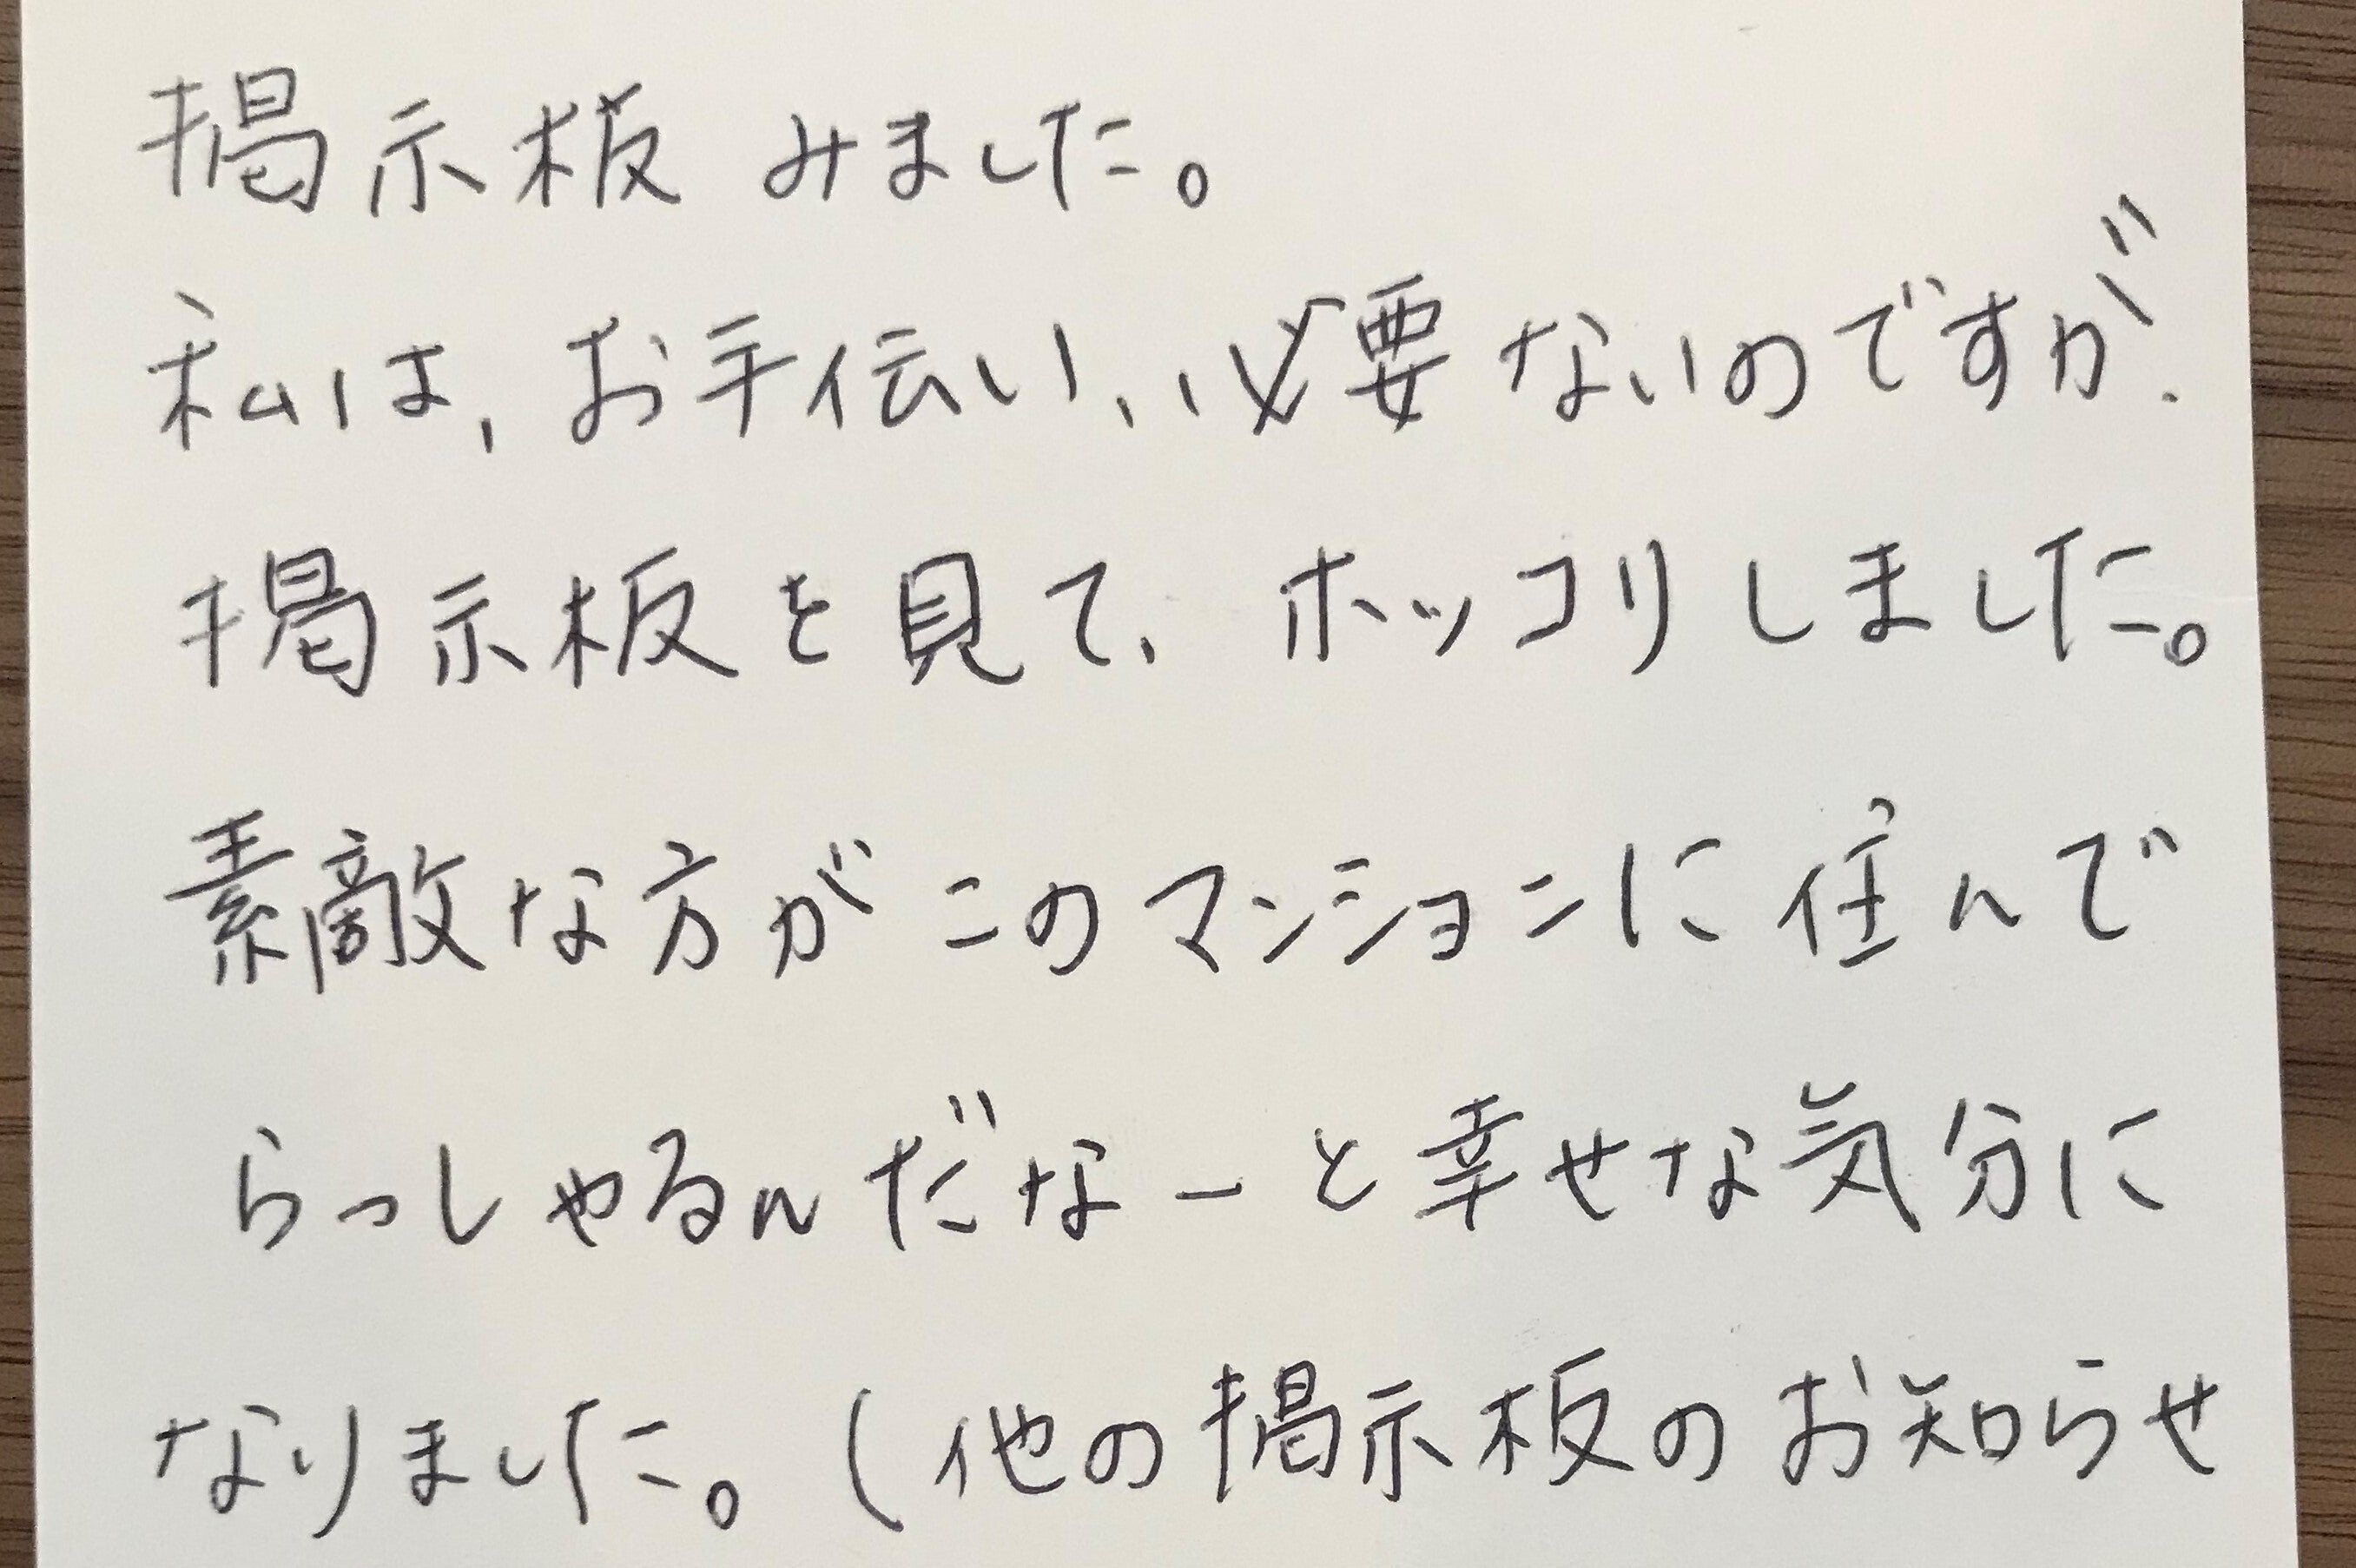 掲示板 みました。
私は、お手伝い、必要ないのですが、
掲示板を見て、ホッコリしました。
素敵な方がこのマンションに住んで
らっしゃるんだなーと幸せな気分に
なりました。(他の掲示板のお知らせ